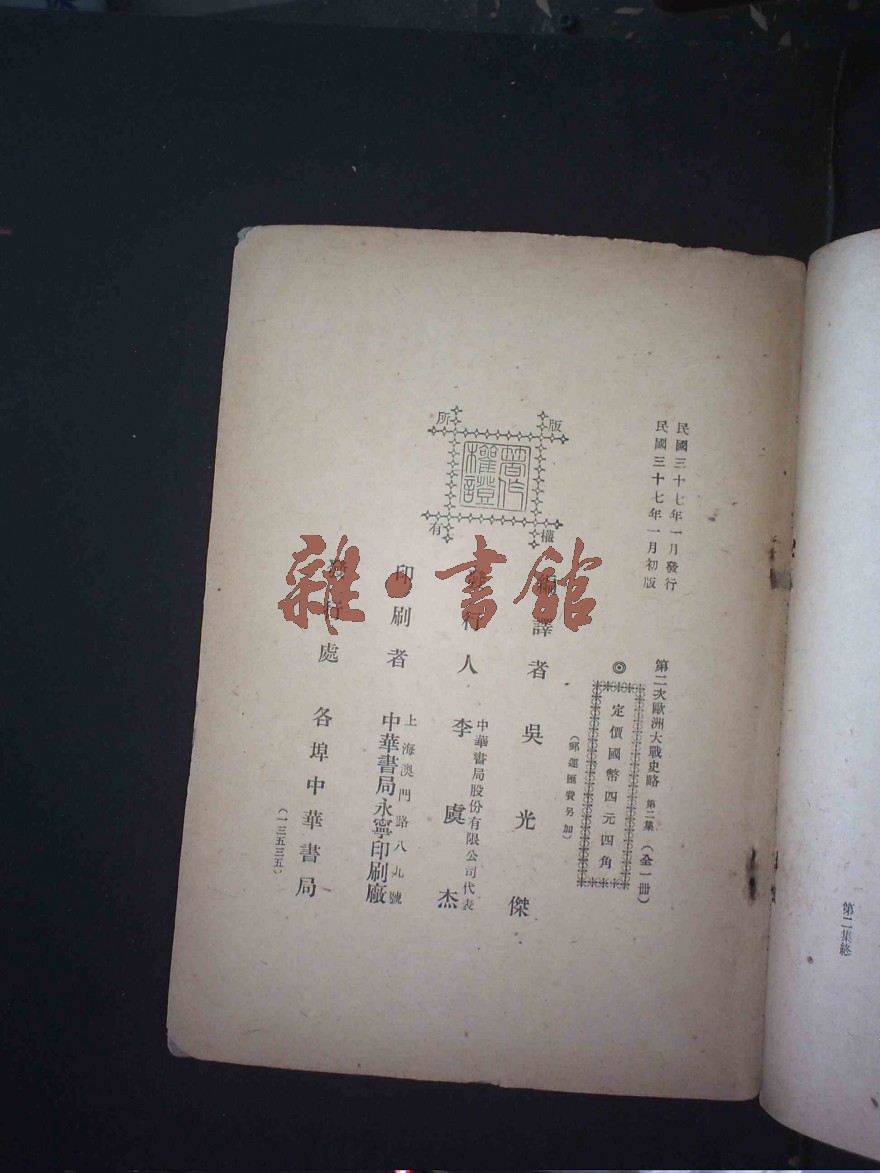 民國三十七年一月發行
民國三十七年一月初版
第二次歐洲大戰史略 第二集 (全一冊)
◎定價國幣四元四角
(郵運匯費另加)
版權所有
著作權證
編譯者 吳光傑
發行人 中華書局股份有限公司代表
李虞杰
印刷者 上海澳門路八九號
中華書局永寧印刷廠
發行處 各埠中華書局
(一三五三五)
第二集終
雜·書館